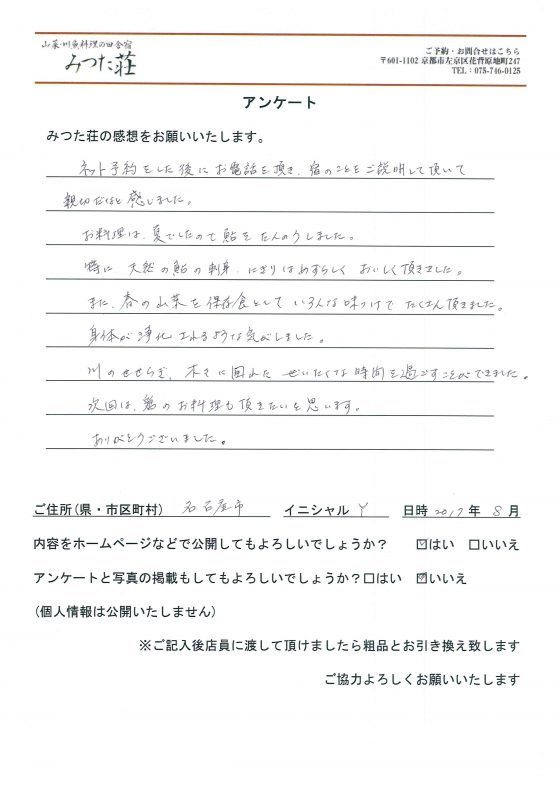 山菜・川魚料理の田舎宿
みつた荘
ご予約・お問合せはこちら
〒601-1102 京都市左京区花背原地町247
TEL：075-746-0125
アンケート
みつた荘の感想をお願いいたします。
ネット予約をした後にお電話を頂き、宿のことをご説明して頂いて
親切だなと感じました。
お料理は、夏でしたので鮎をたんのうしました。
特に 天然の鮎の刺身、にぎりはめずらしく おいしく頂きました。
また、春の山菜を保存食として いろんな味つけで たくさん頂きました。
身体が浄化されるような気がしました。
川のせせらぎ、木々に囲まれた ぜいたくな時間を過ごすことができました。
次回は、鶏のお料理も頂きたいと思います。
ありがとうございました。
ご住所(県・市区町村) 名古屋市 イニシャル Y 日時 2017年 8月
内容をホームページなどで公開してもよろしいでしょうか？ ☑はい □いいえ
アンケートと写真の掲載もしてもよろしいでしょうか？□はい ☑いいえ
(個人情報は公開いたしません)
※ご記入後店員に渡して頂けましたら粗品とお引き換え致します
ご協力よろしくお願いいたします